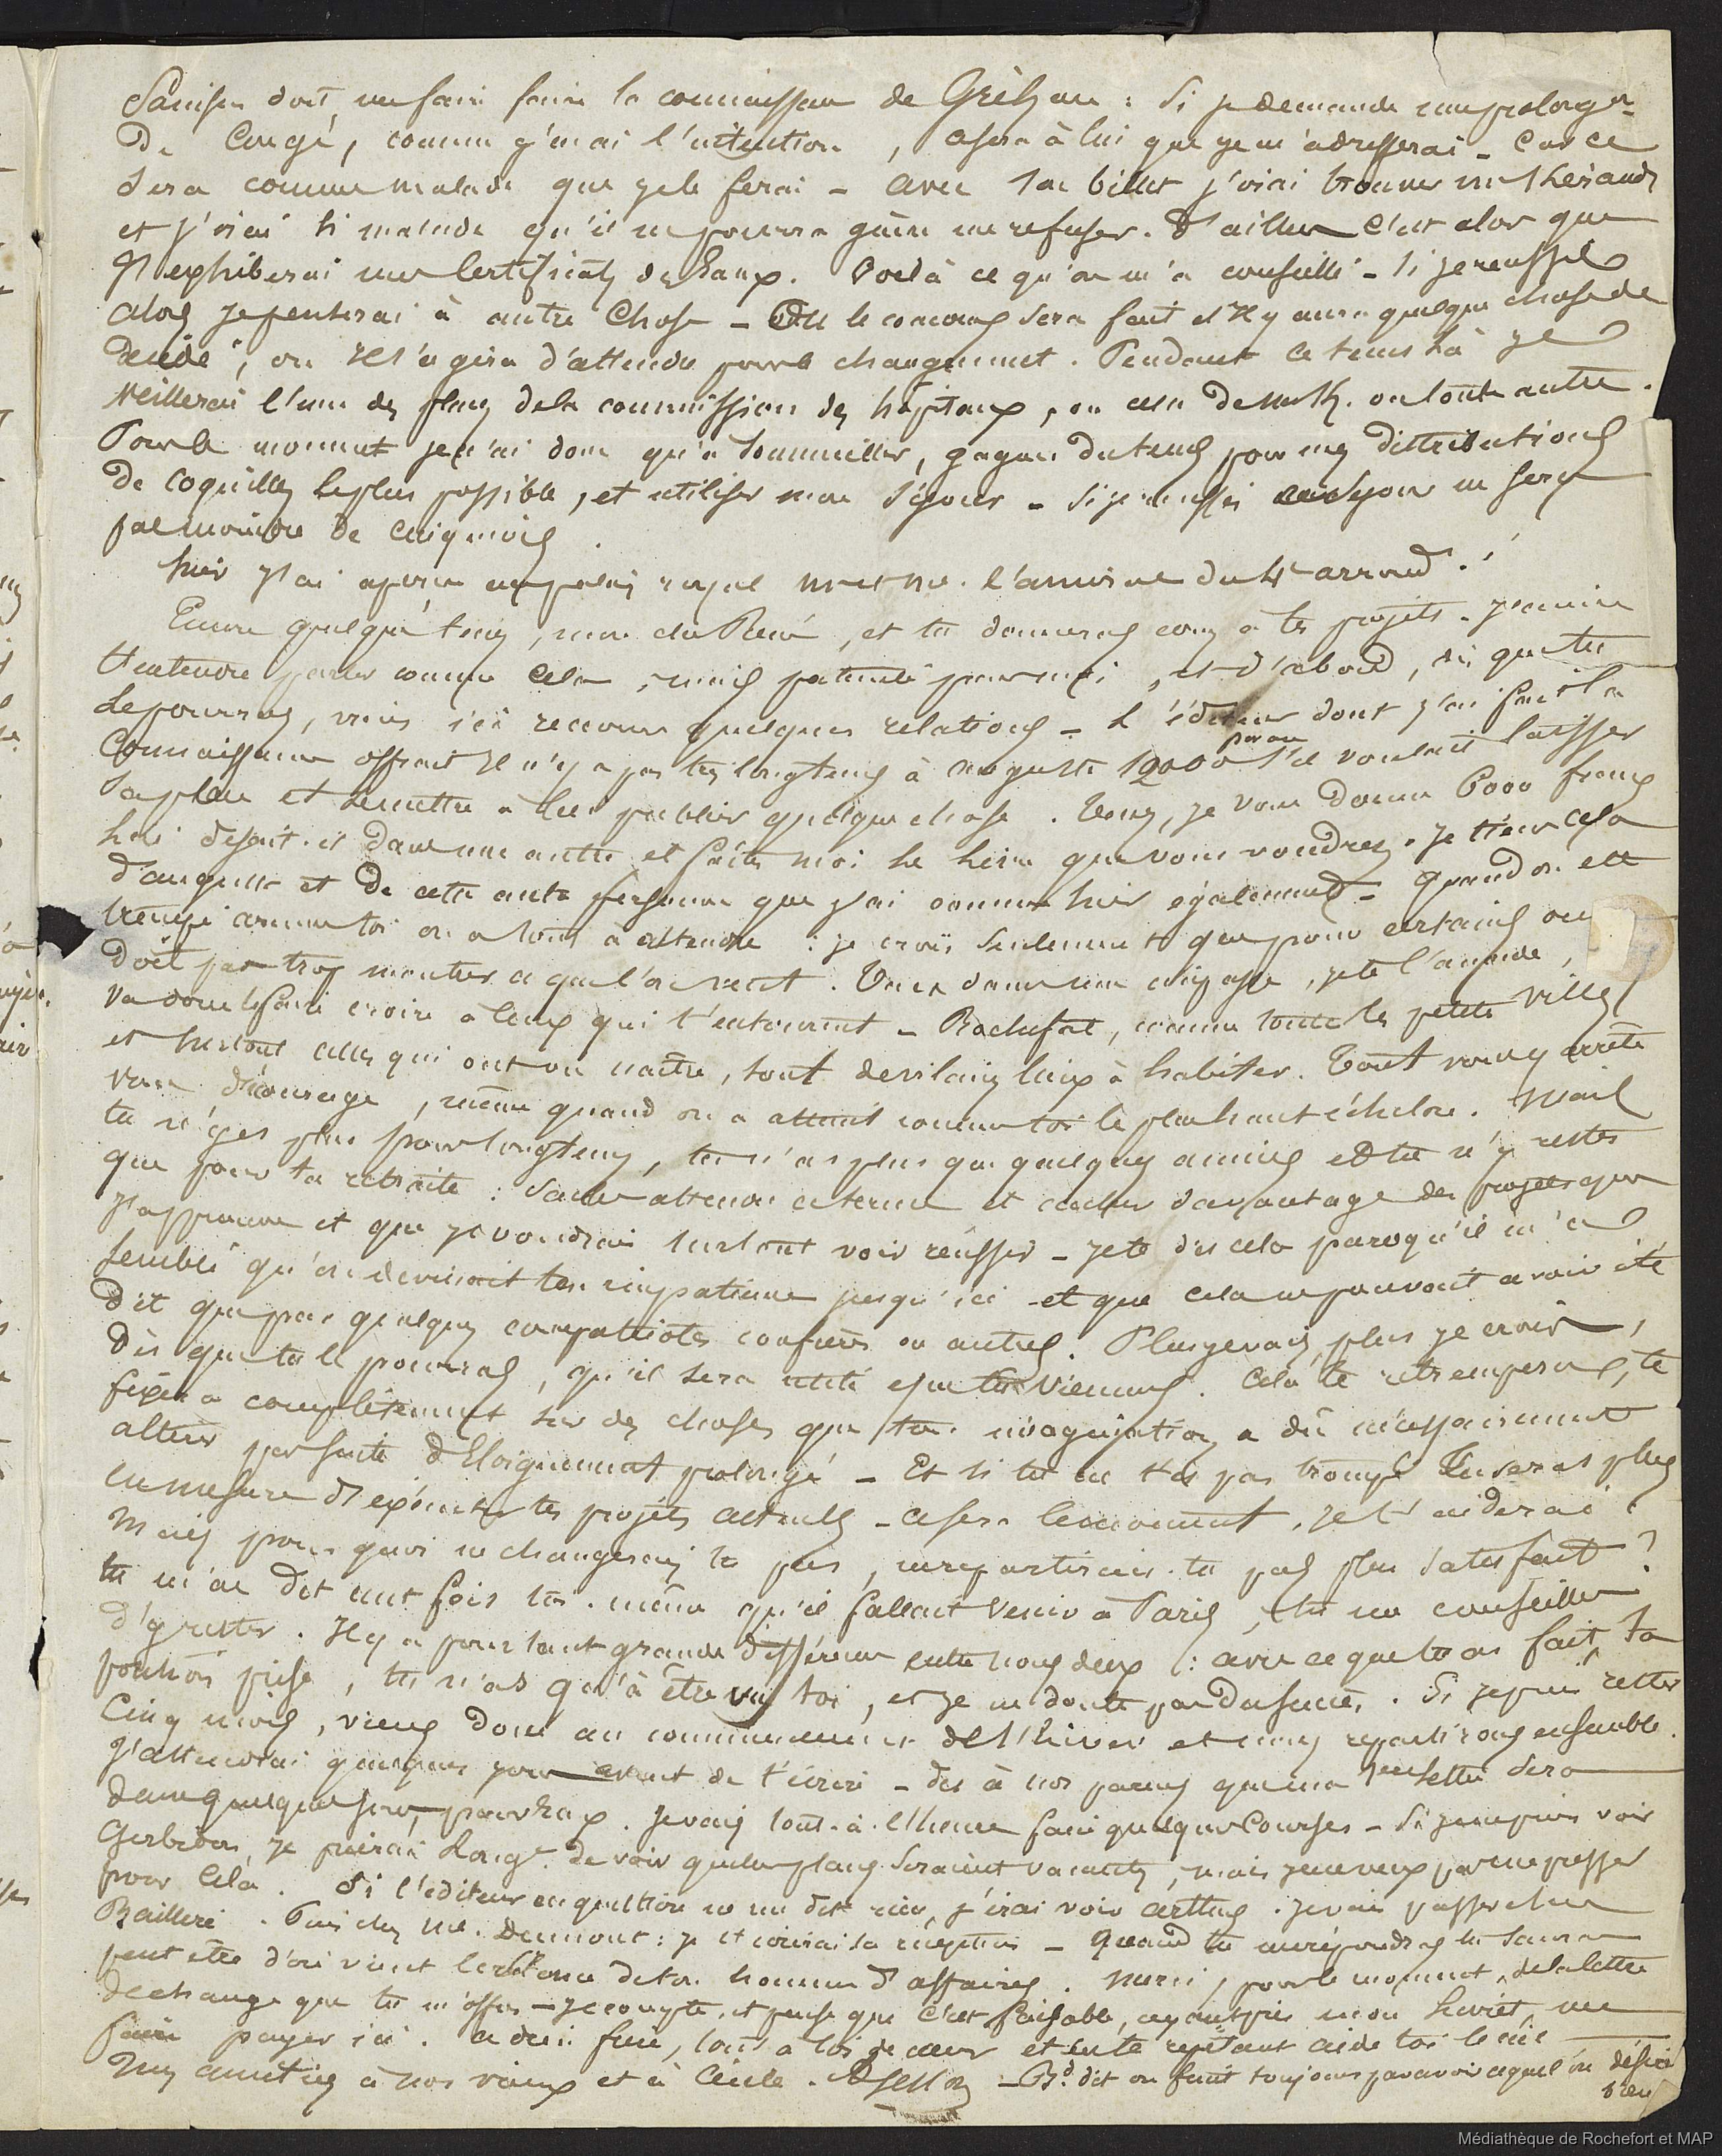 doit me faire faire la connaissance de : Si je demande une prolong.on
De Congé, comme j'en ai l'intention, ce sera à lui que je m'adresserai - Car ce
sera comme malade que je le ferai - avec son billet j'irai trouver
et j'irai si malade qu'il ne pourra guère me refuser. D'ailleurs c'est alors que
J'exhiberai mes Certificats des Eaux. Voilà ce qu'on m'a conseillé - Si je réussis
alors je penserai à autre Chose - Où le concours sera fait et Il y aura quelque chose de
décidé, ou Il s'agira d'attendre pour le changement. Pendant ce tems là je
veillerai l'une des places de la commission des hôpitaux, ou toute autre.
Pour le moment je n'ai donc qu'à sommeiller, gagner du tems pour mes distributions
De coquilles le plus possible, et utiliser mon séjour - Si je réussis ce séjour ne sera
pas moindre de cinq mois.
hier j'ai aperçu au palais royal l'amiral du 4e arrond.t
Encore quelque tems, mon cher René, et tu donneras cours à tes projets. J'aime
t'entendre parler comme cela, mais patiente pour moi, et d'abord, dès que tu
le pourras, viens ici renouer quelques relations - L'éditeur dont j'ai fait la
Connaissance offrait Il n'y a pas très longtems à Auguste 12000 par an s'il voulait laisser
sa place et se mettre à lui publier quelque chose. Tenez, je vous donne 6000 francs
lui disait-il dans une autre et faites moi le livre que vous voudrez. Je tiens cela
d'auguste et de cette autre personne que j'ai connue hier également - quand on est
trempé comme toi on a tout à attendre : je crois seulement que pour certains on
doit pas trop montrer ce que l'on sent. Tu es dans une impasse, je te l'accorde,
va donc le faire croire à ceux qui t'entourent - Rochefort, comme toutes les petites villes
et surtout celles qui ont vu naître, sont de vilains lieux à habiter. Tout vous y arrête
vous décourage, même quand on a atteint comme toi le plus haut échelon. Mais
tu n'y es plus pour longtems, tu n'as plus que quelques années et tu n'y restes
que pour ta retraite : Sache attendre ce terme et cacher davantage des projets que
J'approuve et que je voudrais surtout voir réussir - Je te dis cela parcequ'il m'a
semblé qu'on devinait ton impatience jusqu'ici - et que cela ne pouvait avoir été
dit que par quelques compatriotes confrères ou autres. Plus je vais, plus je crois,
dès que tu le pourras, qu'il sera utile que tu viennes. Cela te retrempera, te
fixera complètement sur des choses que ton imagination a dû nécessairement
altérer par suite d'Eloignement prolongé - Et si tu ne t'es pas trompé Tu seras plus
en mesure d'exécuter tes projets actuels - ce sera le moment, je t'aiderai :
Mais pourquoi ne changerais tu pas, ne repartirais-tu pas plus satisfait ?
tu m'as dit cent fois toi-même qu'il fallait venir à Paris, tu me conseilles
d'y rester. Il y a pourtant grande différence entre nous deux : avec ce que tu as fait, ta
position prise, tu n'as qu'à être vu toi, et je ne doute pas du succès. Si je puis rester
Cinq mois, viens donc au commencement de l'hiver et nous repartirons ensemble.
J'attendrai quelques jours avant de t'écrire - dis à nos parens que ma 1ère lettre sera
dans quelques jours, pour Eux. Je vais tout-à-l'heure faire quelques Courses - Si je ne puis voir
Gerbidon, je prierai Long.t de voir quelles places seraient vacantes, mais je ne veux pas me presser
pour cela. Si l'éditeur en question ne me dit rien, j'irai voir arthus. Je vais passer chez
Bailliere. Puis chez Me. Dumont : je t'écrirai sa réception - quand tu me répondras tu sauras
peut être d'où vient le silence de ton homme d'affaires. Merci, pour le moment, de la lettre
de change que tu m'offres - J'y compte, et pense que c'est faisable, ayant pris mon livret, me
faire payer ici. adieu frère, tout à toi de coeur et en te répétant aide toi le ciel
Mes amitiés à nos vieux et à Cécile. RLesson - Bd. dit on finit toujours par avoir ce que l'on désire
bien
Médiathèque de Rochefort et MAP